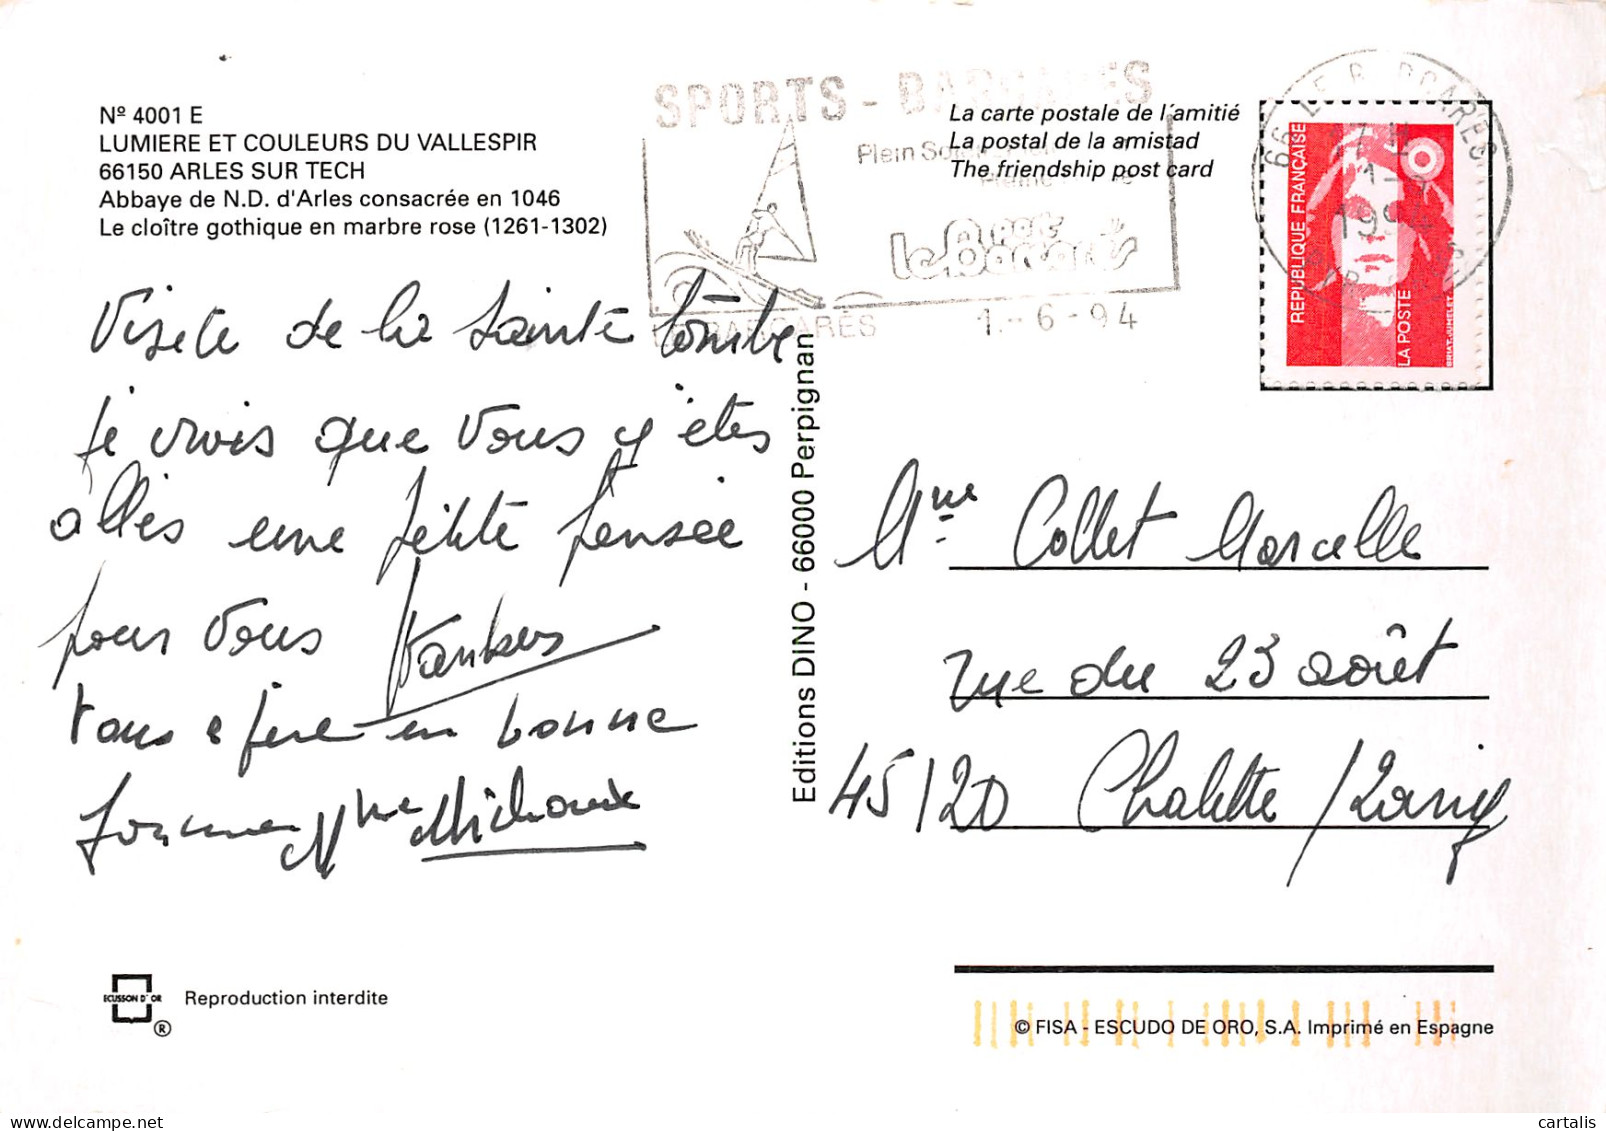 Nº 4001 E
LUMIERE ET COULEURS DU VALLESPIR
66150 ARLES SUR TECH
Abbaye de N.D. d'Arles consacrée en 1046
Le cloître gothique en marbre rose (1261-1302)
SPORTS - BARCARES
Plein
le Barcarès
BARCARÈS 1.-6-94
La carte postale de l'amitié
La postal de la amistad
The friendship post card
66 LE BARCARES
REPUBLIQUE FRANÇAISE
LA POSTE
BRIAT-JUMELET
Visite de la Sainte tombe
je crois que vous y êtes
allés une petite pensée
pour vous
tous e père en bonne
forme Mme Michaux
Editions DINO - 66000 Perpignan
Mme Collet Marcelle
rue du 23 août
45120 Chalette / Loing
ECUSSON D'OR
® Reproduction interdite
© FISA - ESCUDO DE ORO, S.A. Imprimé en Espagne
cartalis